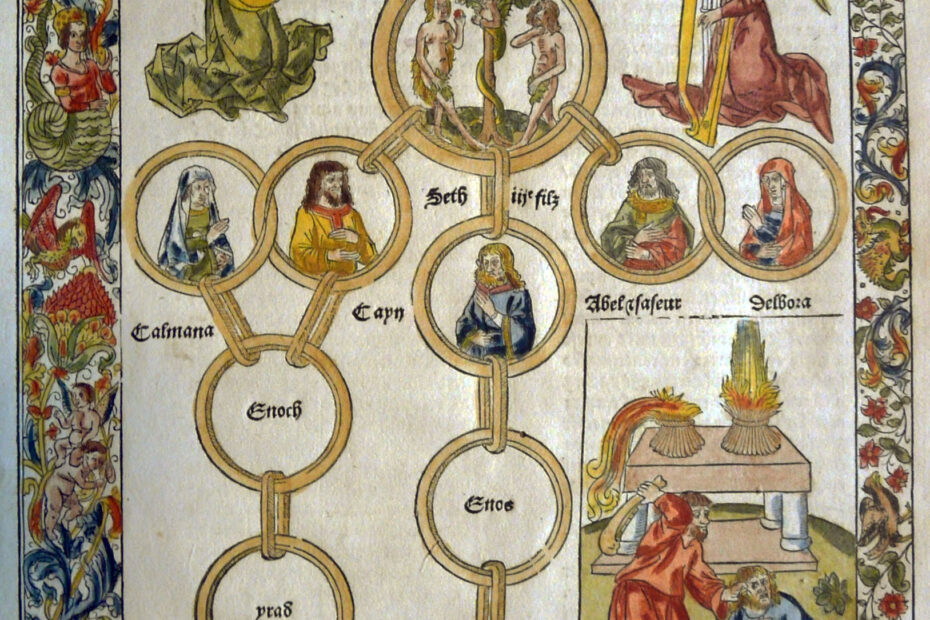 Seth iije filz
Calmana Cayn Abel ⁊ sa seur Delbora
Enoch
Enos
yrad